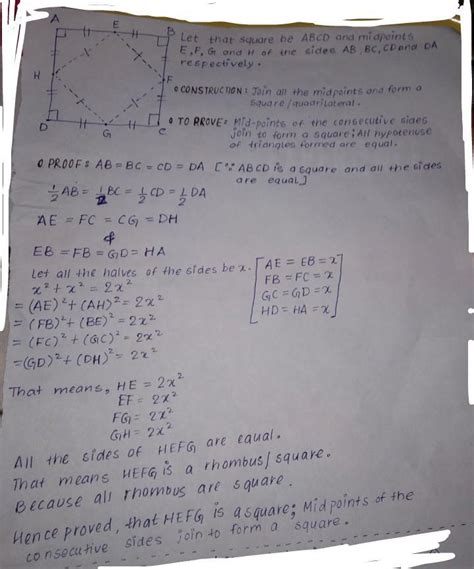 A E B
H F
D G C
Let that square be ABCD and midpoints
E, F, G and H of the sides AB, BC, CD and DA
respectively.
CONSTRUCTION: Join all the midpoints and form a
square/quadrilateral.
TO PROVE: Mid-points of the consecutive sides
join to form a square; All hypotenuse
of triangles formed are equal.
PROOF: AB = BC = CD = DA [∵ ABCD is a square and all the sides
are equal]
1/2 AB = 1/2 BC = 1/2 CD = 1/2 DA
AE = FC = CG = DH
&
EB = FB = GD = HA
Let all the halves of the sides be x.
[AE = EB = x
FB = FC = x
GC = GD = x
HD = HA = x]
x² + x² = 2x²
= (AE)² + (AH)² = 2x²
= (FB)² + (BE)² = 2x²
= (FC)² + (GC)² = 2x²
= (GD)² + (DH)² = 2x²
That means, HE = 2x²
EF = 2x²
FG = 2x²
GH = 2x²
All the sides of HEFG are equal.
That means HEFG is a rhombus/square.
Because all rhombus are square.
Hence proved, that HEFG is a square; Midpoints of the
consecutive sides join to form a square.